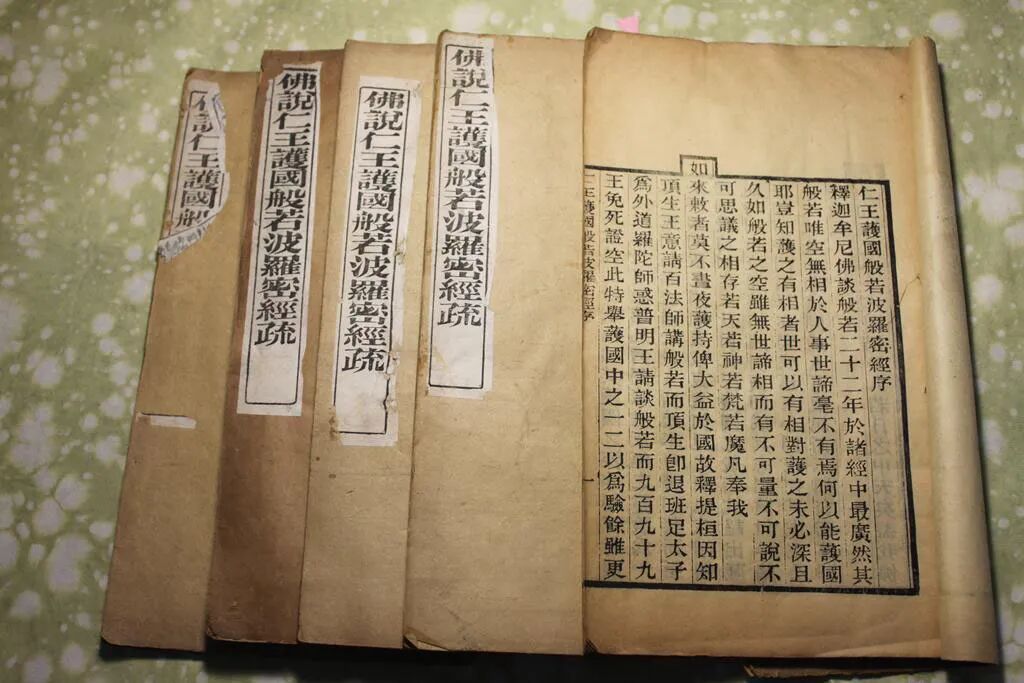 仁王護國般若波羅密經序
釋迦牟尼佛談般若二十二年於諸經中最廣然其
般若唯空無相於人事世諦毫不有焉何以能護國
耶豈知護之有相者世可以有相對護之未必深且
久如般若之空雖無世諦相而有不可量不可說不
可思議之相存若天若神若梵若魔凡奉我
如來敕者莫不晝夜護持俾大益於國故釋提桓因知
頂生王意請百法師講般若而頂生卽退班足太子
爲外道羅陀師惑普明王請談般若而九百九十九
王免死證空此特舉護國中之一二以爲驗餘雖更
仁王護國般若波羅密經序 一
佛說仁王護國般若波羅密經疏
佛說仁王護國般若波羅密經疏
佛說仁王護國般若波羅密經疏
佛說仁王護國般